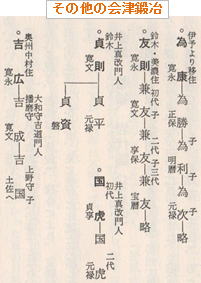 その他の会津鍛冶
伊予より移住
為康―為勝―為利―為次―略
寛永 正保 明暦 元禄
子 子
鈴木・美濃住 初代 子 二代 子 三代
友則―兼友―兼友―兼友―略
寛永 寛文 享保 宝暦
井上真改門人
鈴木
貞則―貞平
寛文 元禄
貞資
磐
井上真改門人 二代
国虎―国虎
貞享 元禄
奥州中村住
大和守吉道門人
播磨守 上野守 子
吉広―吉成―吉国
寛永 寛文 土佐へ